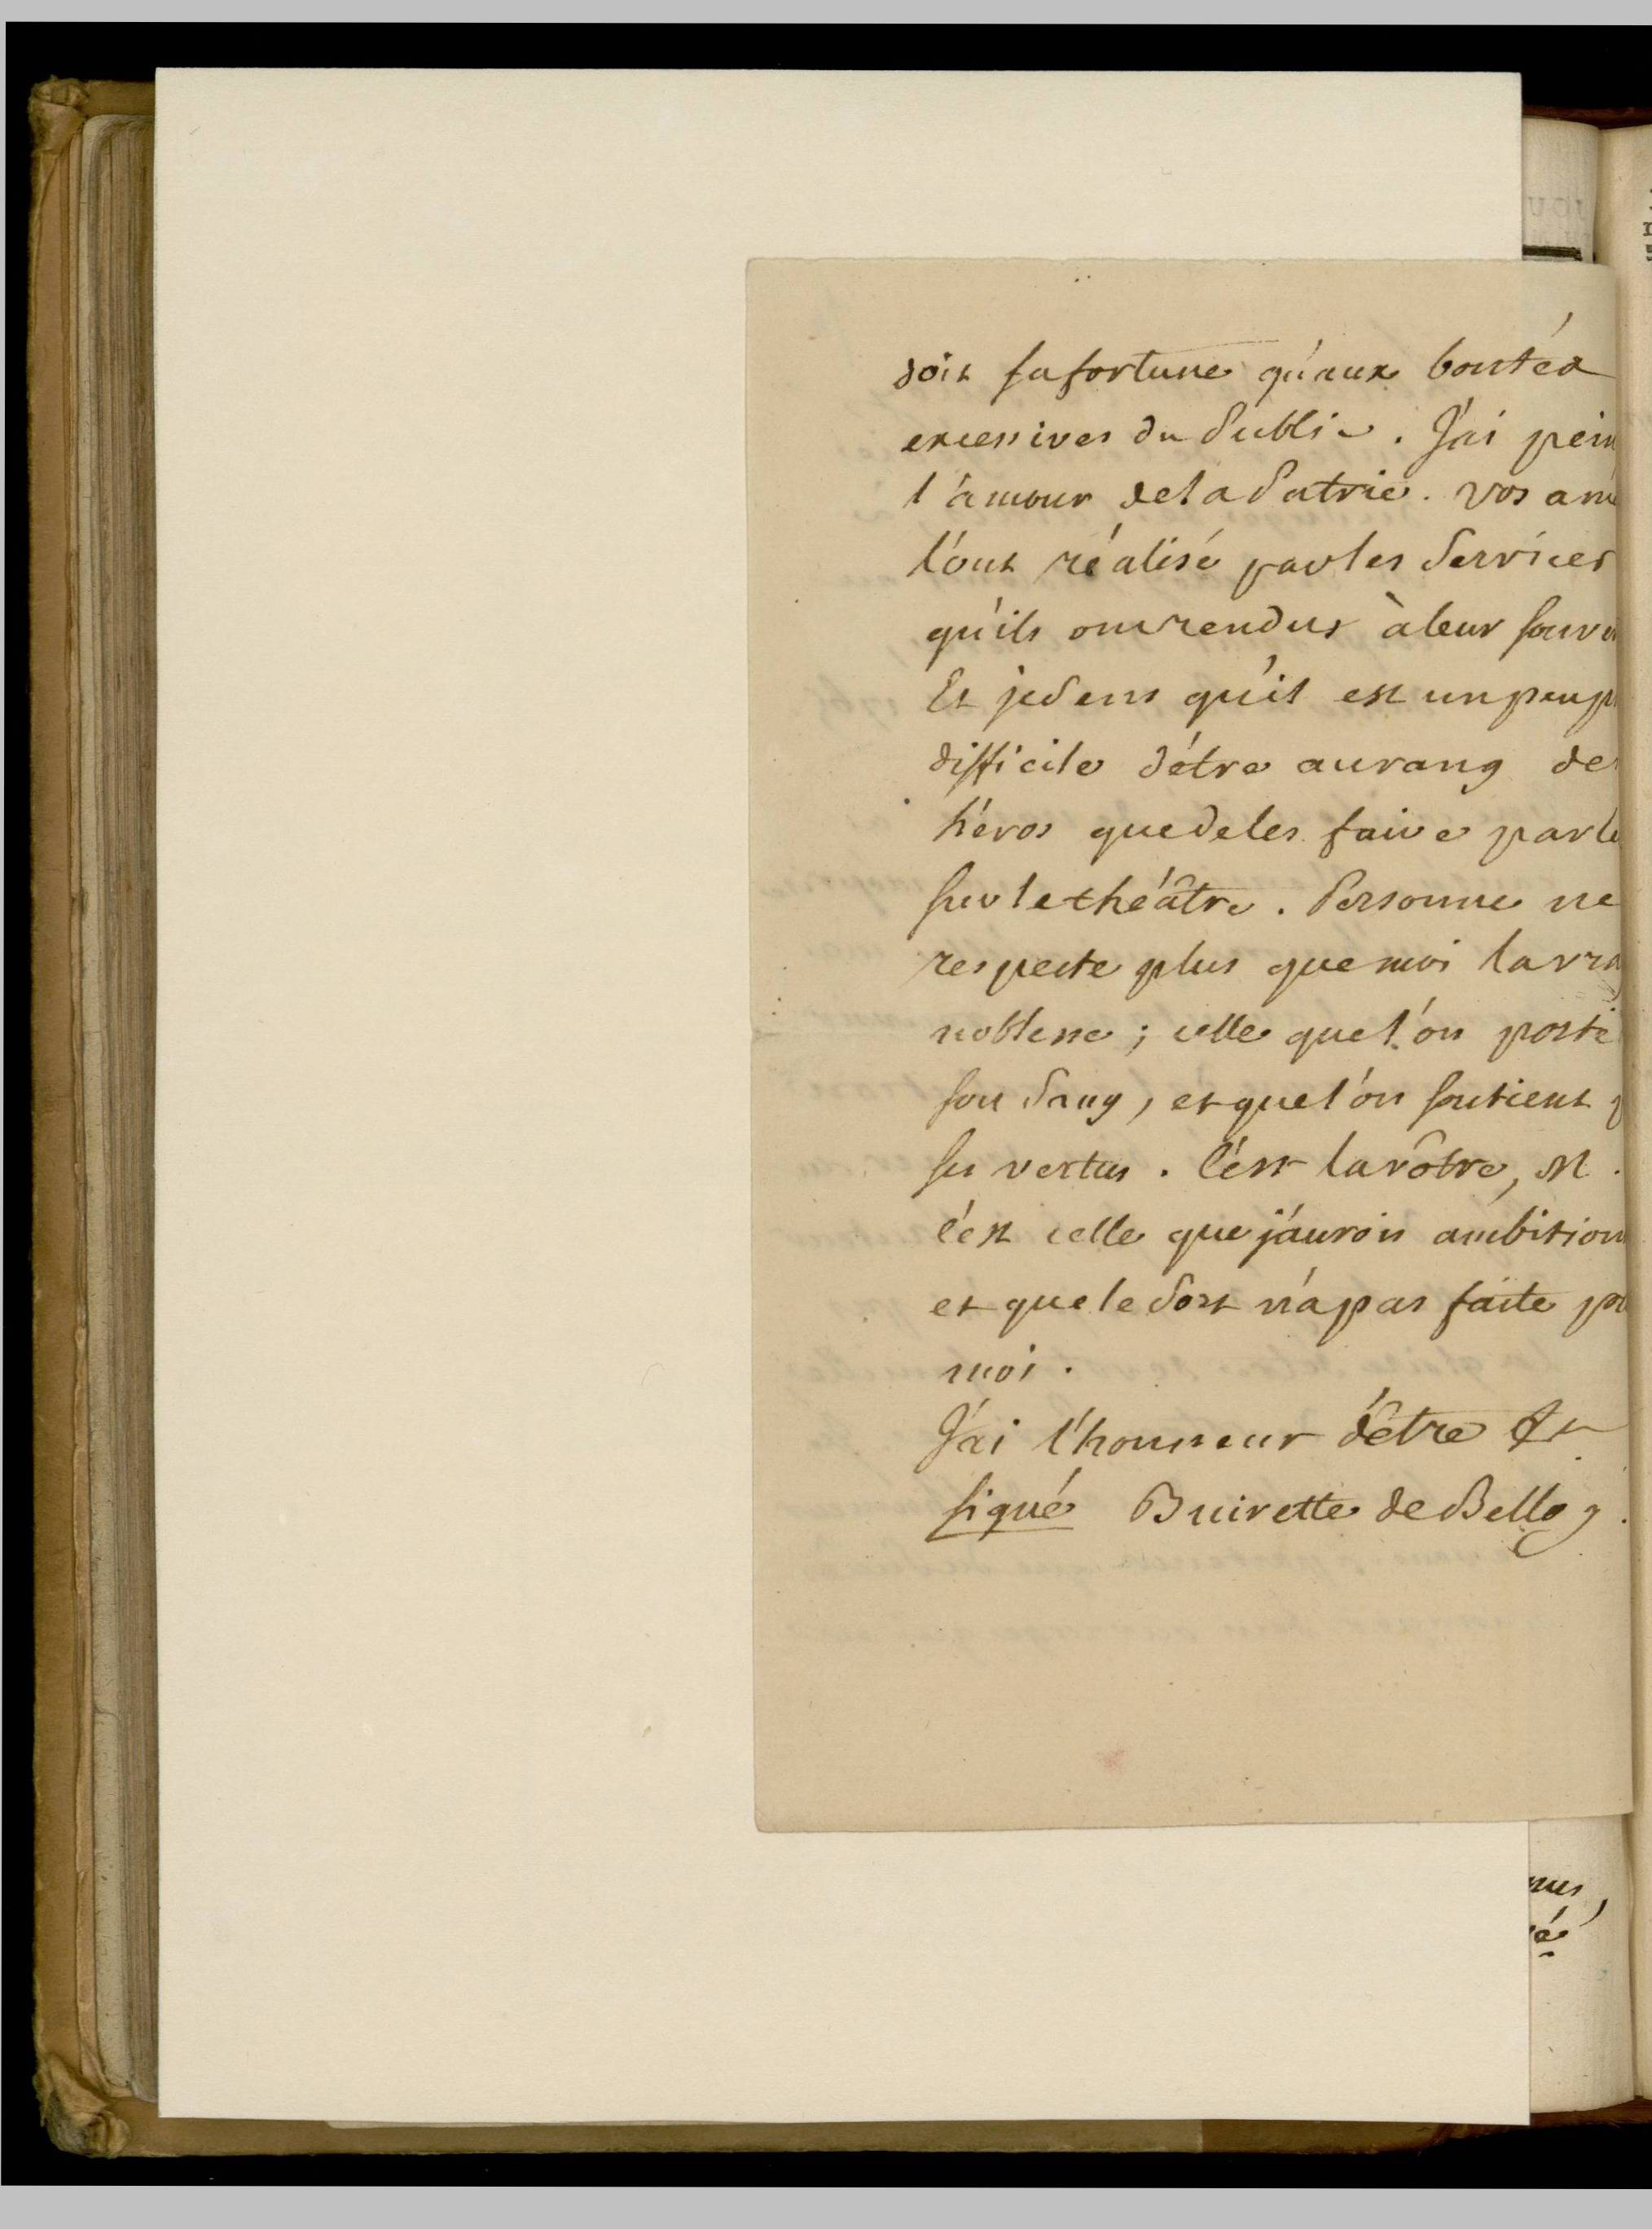 doit sa fortune qu'aux bontés
excessives du Public. J'ai pein
l'amour de la Patrie. vos
l'ont réalisé par les Services
qu'ils ont rendus à leur
Et je Sens qu'il est un peu
difficile d'être au rang de
héros que de les faire parle
sur le théâtre. Personne ne
respecte plus que moi la
noblesse; celle que l'on
son Sang, et que l'on soutient
ses vertus. C'est la vôtre, M.
C'est celle que j'aurois ambition
et que le Sort n'a pas faite
moi.
J'ai l'honneur d'être &c
signé Buirette de Belloy.
JOU
nus,